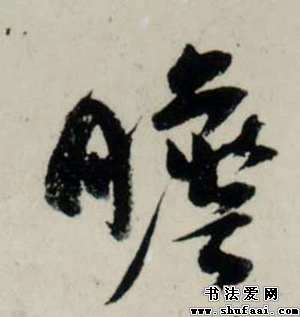 膽
书法爱网
www.shufaai.com